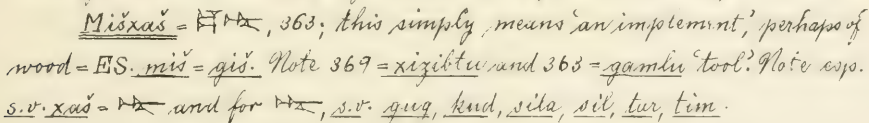 Mišxaš = 𒄑𒋻, 363; this simply means 'an implement,' perhaps of
wood = ES. miš = giš. Note 369 = xizibtu and 363 = gamlu 'tool.' Note esp.
s.v. xaš = 𒋻 and for 𒋻, s.v. gug, kud, sila, sil, tur, tim.